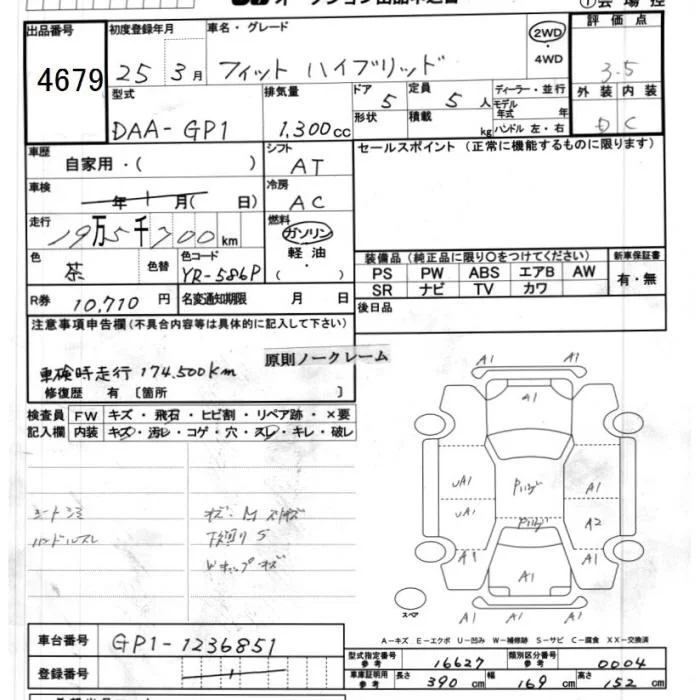 オークション出品申込書
①会場控
出品番号 初度登録年月 車名・グレード 2WD ・ 4WD 評価点
4679 25 3月 フィット ハイブリッド 3.5
型式 排気量 ドア 定員 ディーラー・並行 外装 内装
DAA-GP1 1,300cc 5 5人 モデル年式 年 D C
形状 積載 kg ハンドル 左・右
車歴 シフト セールスポイント (正常に機能するものに限ります)
自家用・( ) AT
車検 冷房
年 月( 日) AC
走行 燃料
19万5千700km ガソリン 軽油 ・( )
色 色替 色コード
茶 YR-586P
装備品(純正品に限り○をつけてください) 新車保証書
PS PW ABS エアB AW 有・無
SR ナビ TV カワ
R券 10,710円 名変通知期限 月 日 後日品
注意事項申告欄(不具合内容等は具体的に記入して下さい)
原則ノークレーム
車検時走行 174.500km
修復歴 有 〔箇所 〕
検査員 FW キズ・飛石・ヒビ割・リペア跡・×要
記入欄 内装 キズ・汚レ・コゲ・穴・スレ・キレ・破レ
シートシミ
ハンドルスレ
下廻りS
Wキャップキズ
A1 A1
A1
UA1 A1
UA1 A2
A1 A1 A1
A1 A1
スペア
A-キズ E-エクボ U-凹み W-補修跡 S-サビ C-腐食 XX-交換済
車台番号 GP1-1236851
登録番号
型式指定番号 参考 16627 類別区分番号 参考 0004
車庫証明用 参考 長さ 390cm 幅 169cm 高さ 152cm